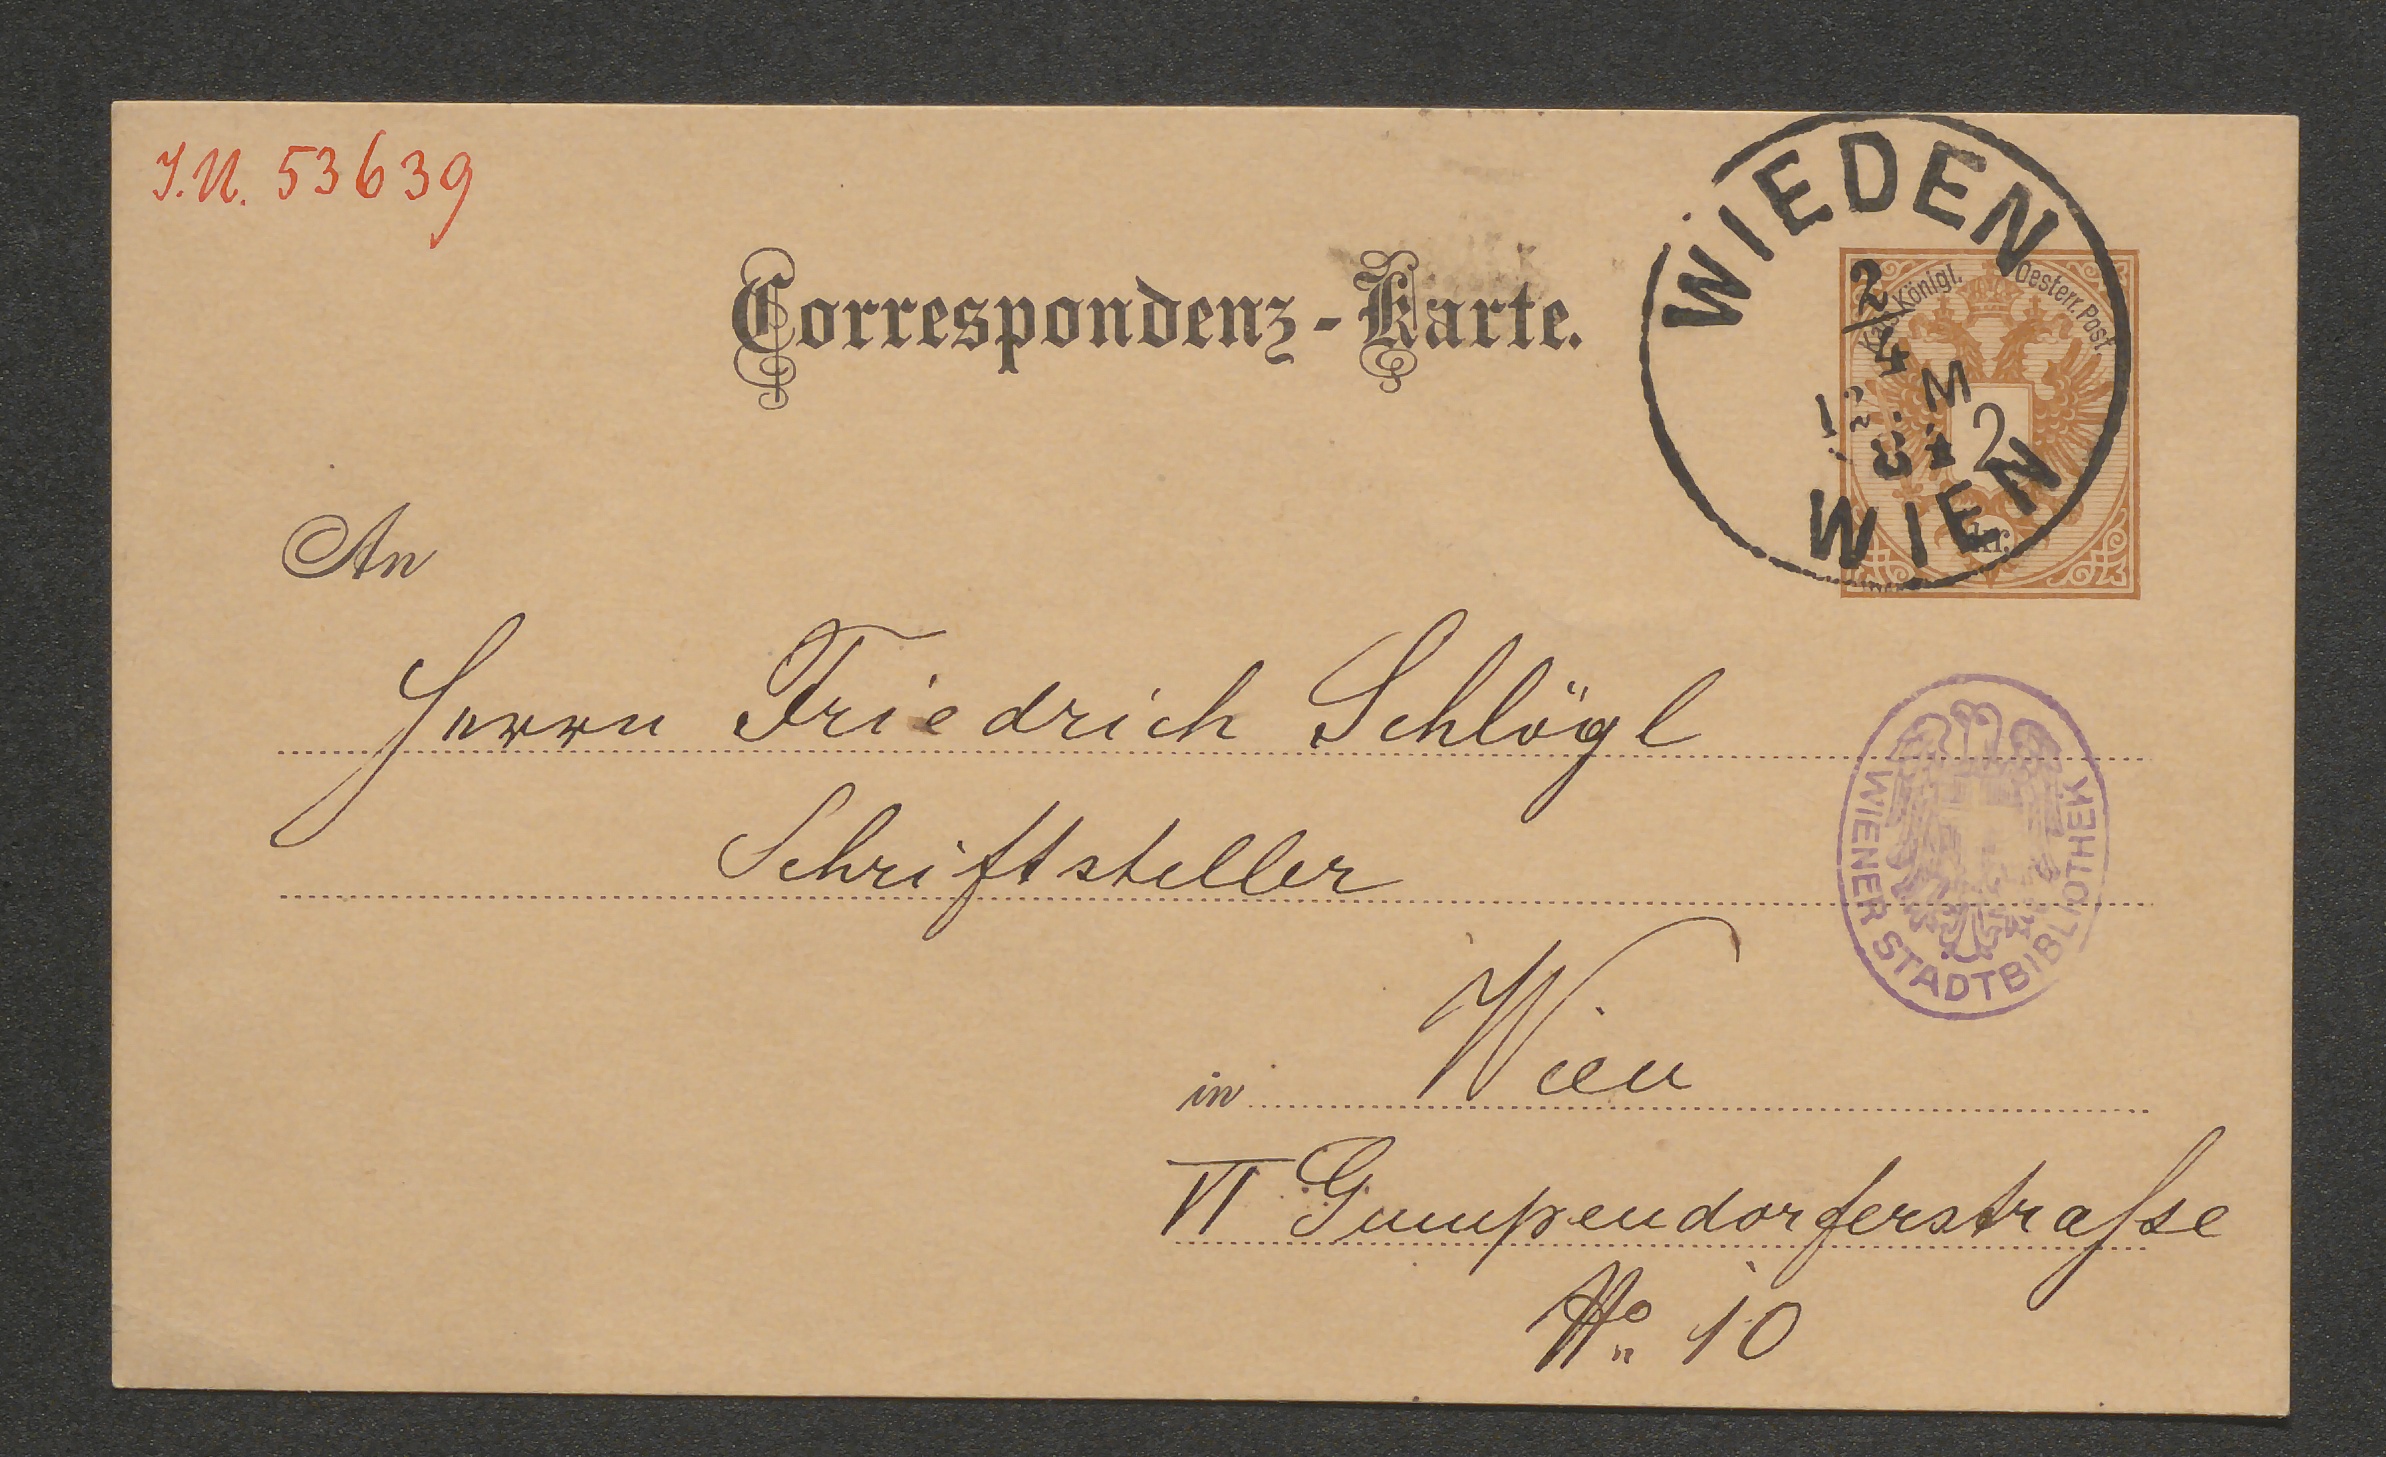 I.N. 53639
Correspondenz-Karte.
WIEDEN
WIEN
2/4
Kais. Königl. Oesterr. Post.
2
kr.
An
Herrn Friedrich Schlögl
Schriftsteller
WIENER STADTBIBLIOTHEK
in Wien
VI Gumpendorferstraſse
No 10